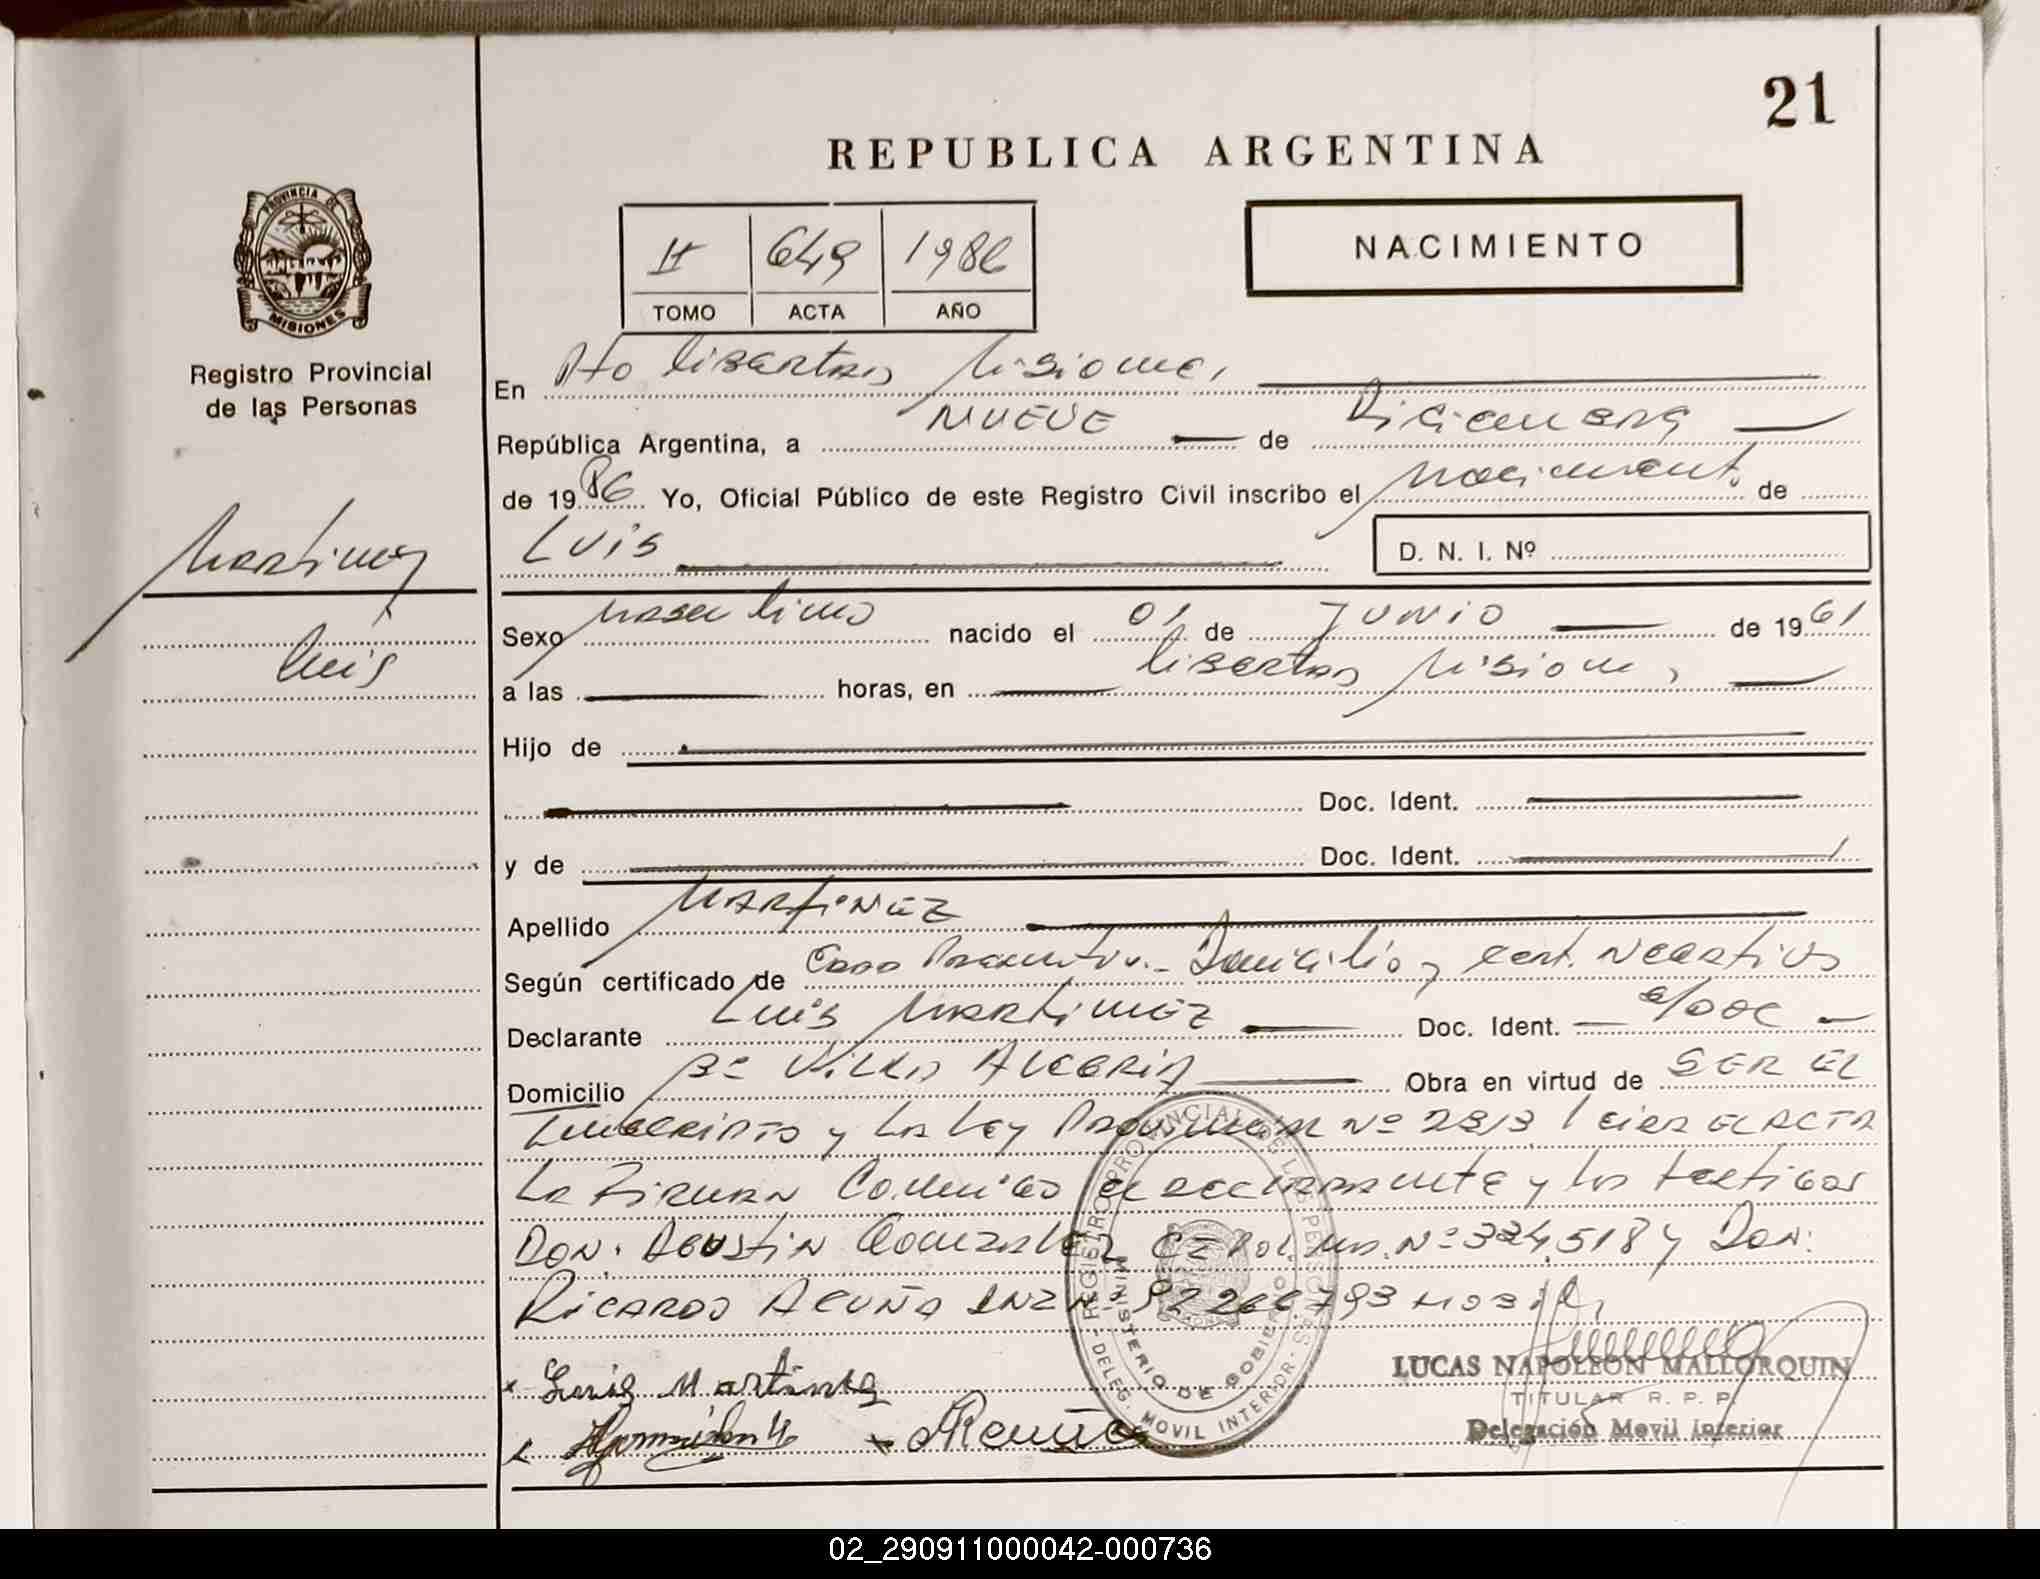 21
REPUBLICA ARGENTINA
PROVINCIA DE
MISIONES
Registro Provincial
de las Personas
II 649 1986
TOMO ACTA AÑO
NACIMIENTO
En Pto Libertad Misiones,
República Argentina, a NUEVE de Diciembre
de 1986 Yo, Oficial Público de este Registro Civil inscribo el Nacimiento de
LUIS
D. N. I. Nº
Martinez
Luis
Sexo Masculino nacido el 01 de JUNIO de 1961
a las horas, en Libertad Misiones,
Hijo de
Doc. Ident.
y de Doc. Ident.
Apellido MARTINEZ
Según certificado de Domicilio y cert. Negativo
Declarante Luis Martinez Doc. Ident. s/doc
Domicilio Bº Villa Alegria Obra en virtud de SER EL
Inscripto y la Ley Provincial Nº EL ACTA
La Firman Conmigo el declarante y los testigos
Don. Agustin Gonzalez Nº 334.518 y Don:
Ricardo Acuña
Luis Martinez
RAcuña
REGISTRO PROVINCIAL DE LAS PERSONAS
MINISTERIO DE GOBIERNO
DELEG. MOVIL INTERIOR
LUCAS NAPOLEON MALLORQUIN
TITULAR R. P. P.
Delegación Movil Interior
02_290911000042-000736